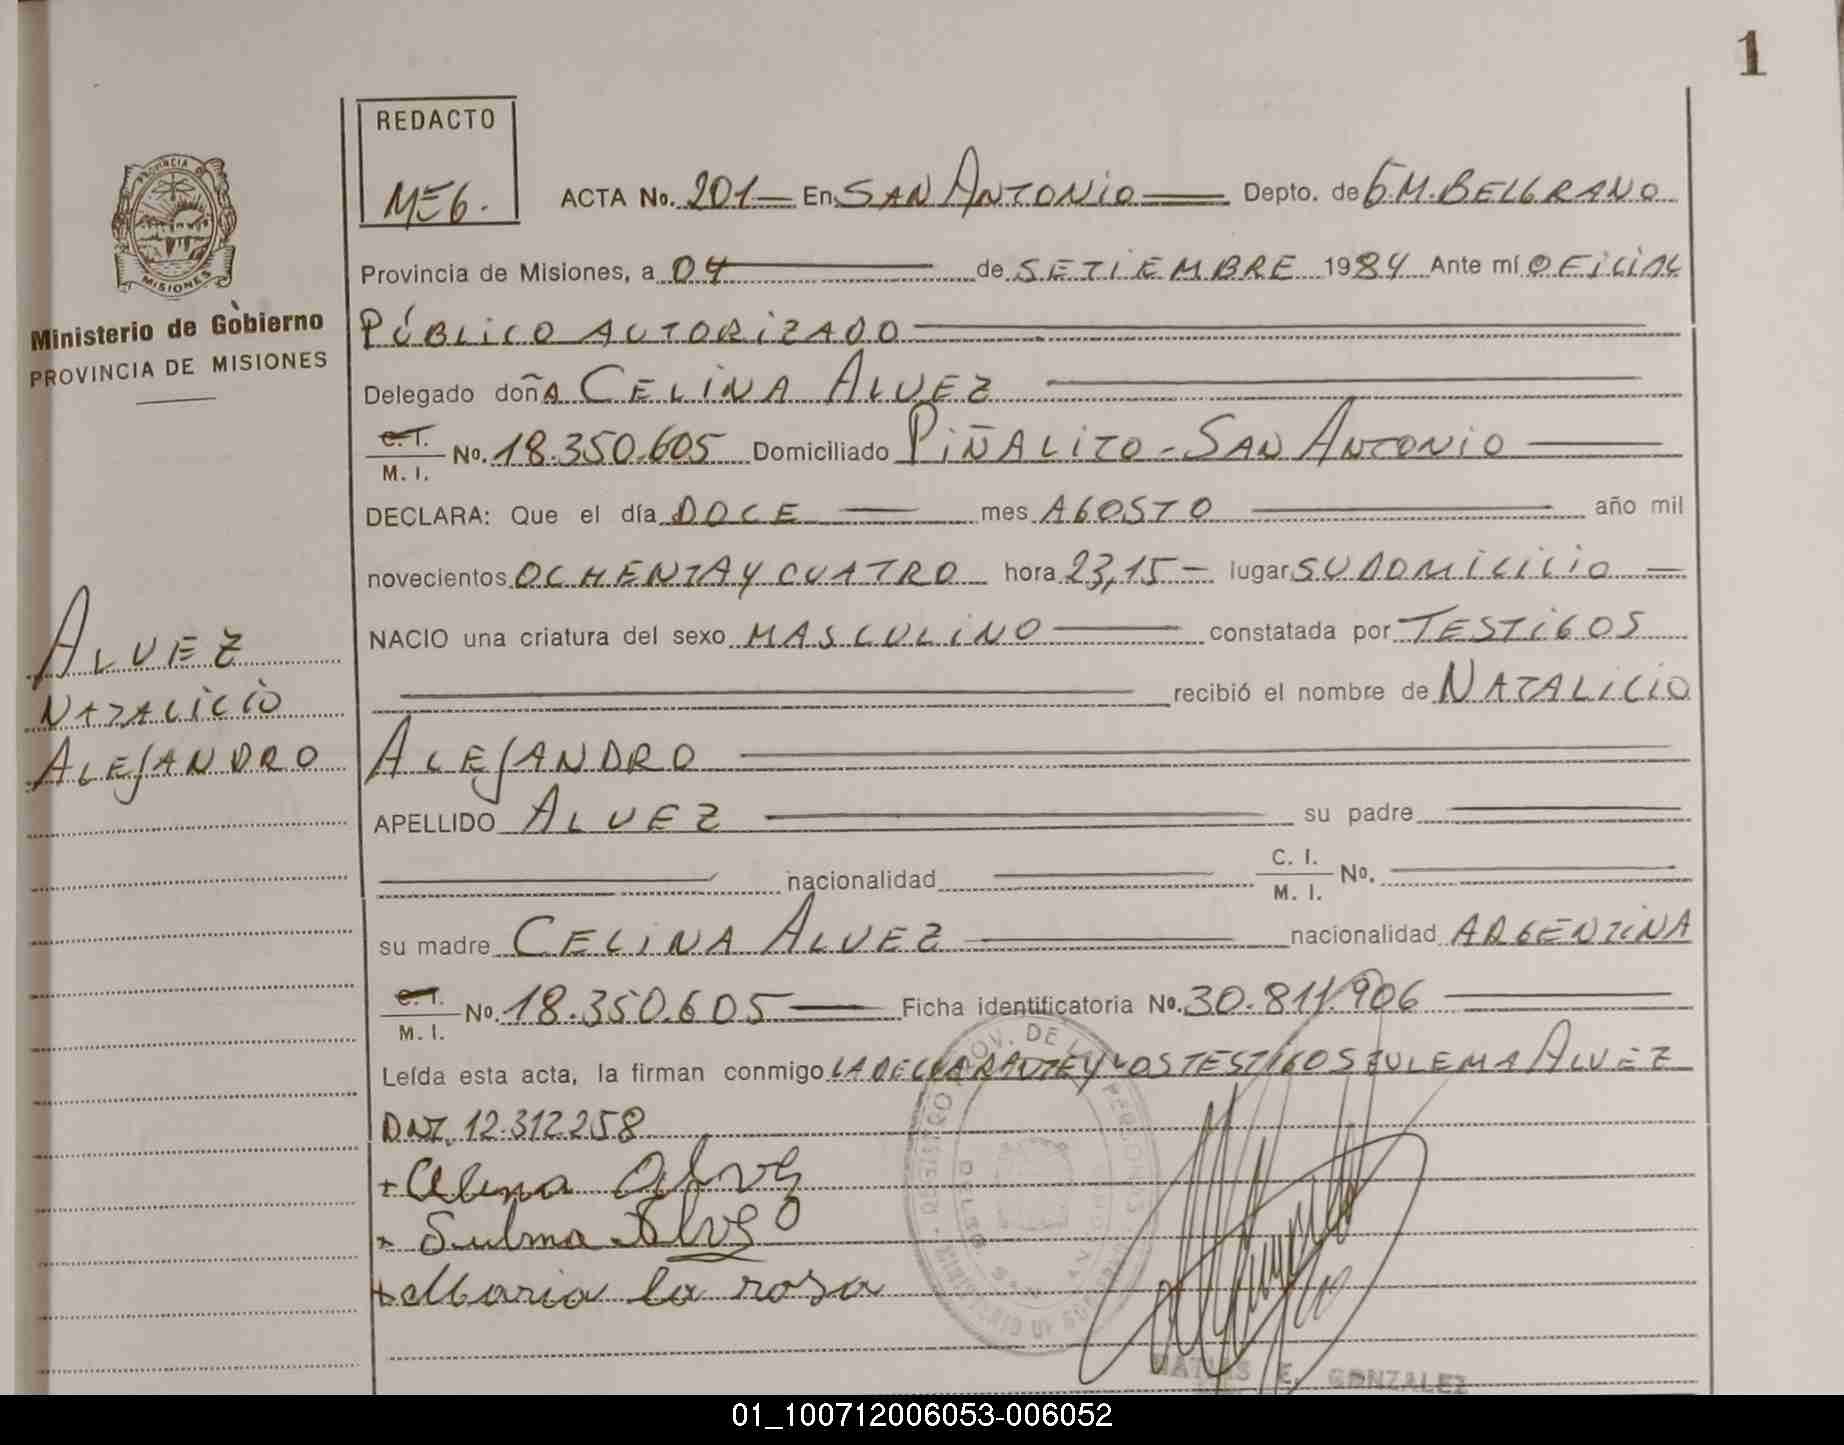 1
REDACTO
MEG.
ACTA No. 201 En SAN ANTONIO Depto. de G.M. BELGRANO
Provincia de Misiones, a 04 de SETIEMBRE 1984 Ante mí OFICIAL
PÚBLICO AUTORIZADO
PROVINCIA DE
MISIONES
Ministerio de Gobierno
PROVINCIA DE MISIONES
Delegado doñA CELINA ALVEZ
C.I.
M. I. No. 18.350.605 Domiciliado PIÑALITO - SAN ANTONIO
DECLARA: Que el día DOCE mes AGOSTO año mil
novecientos OCHENTA Y CUATRO hora 23,15 - lugar SU DOMICILIO
NACIO una criatura del sexo MASCULINO constatada por TESTIGOS
recibió el nombre de NATALICIO
ALEJANDRO
ALVEZ
NATALICIO
ALEJANDRO
APELLIDO ALVEZ su padre
nacionalidad C. I. No.
M. I.
su madre CELINA ALVEZ nacionalidad ARGENTINA
C.I.
M. I. No. 18.350.605 Ficha identificatoria No. 30.811.906
Leída esta acta, la firman conmigo LA DECLARANTE Y LOS TESTIGOS ZULEMA ALVEZ
DNI. 12.312.258
+ Celina Alvez
+ Sulma Alvez
+ Maria la rosa
MATIAS E. GONZALEZ
01_100712006053-006052